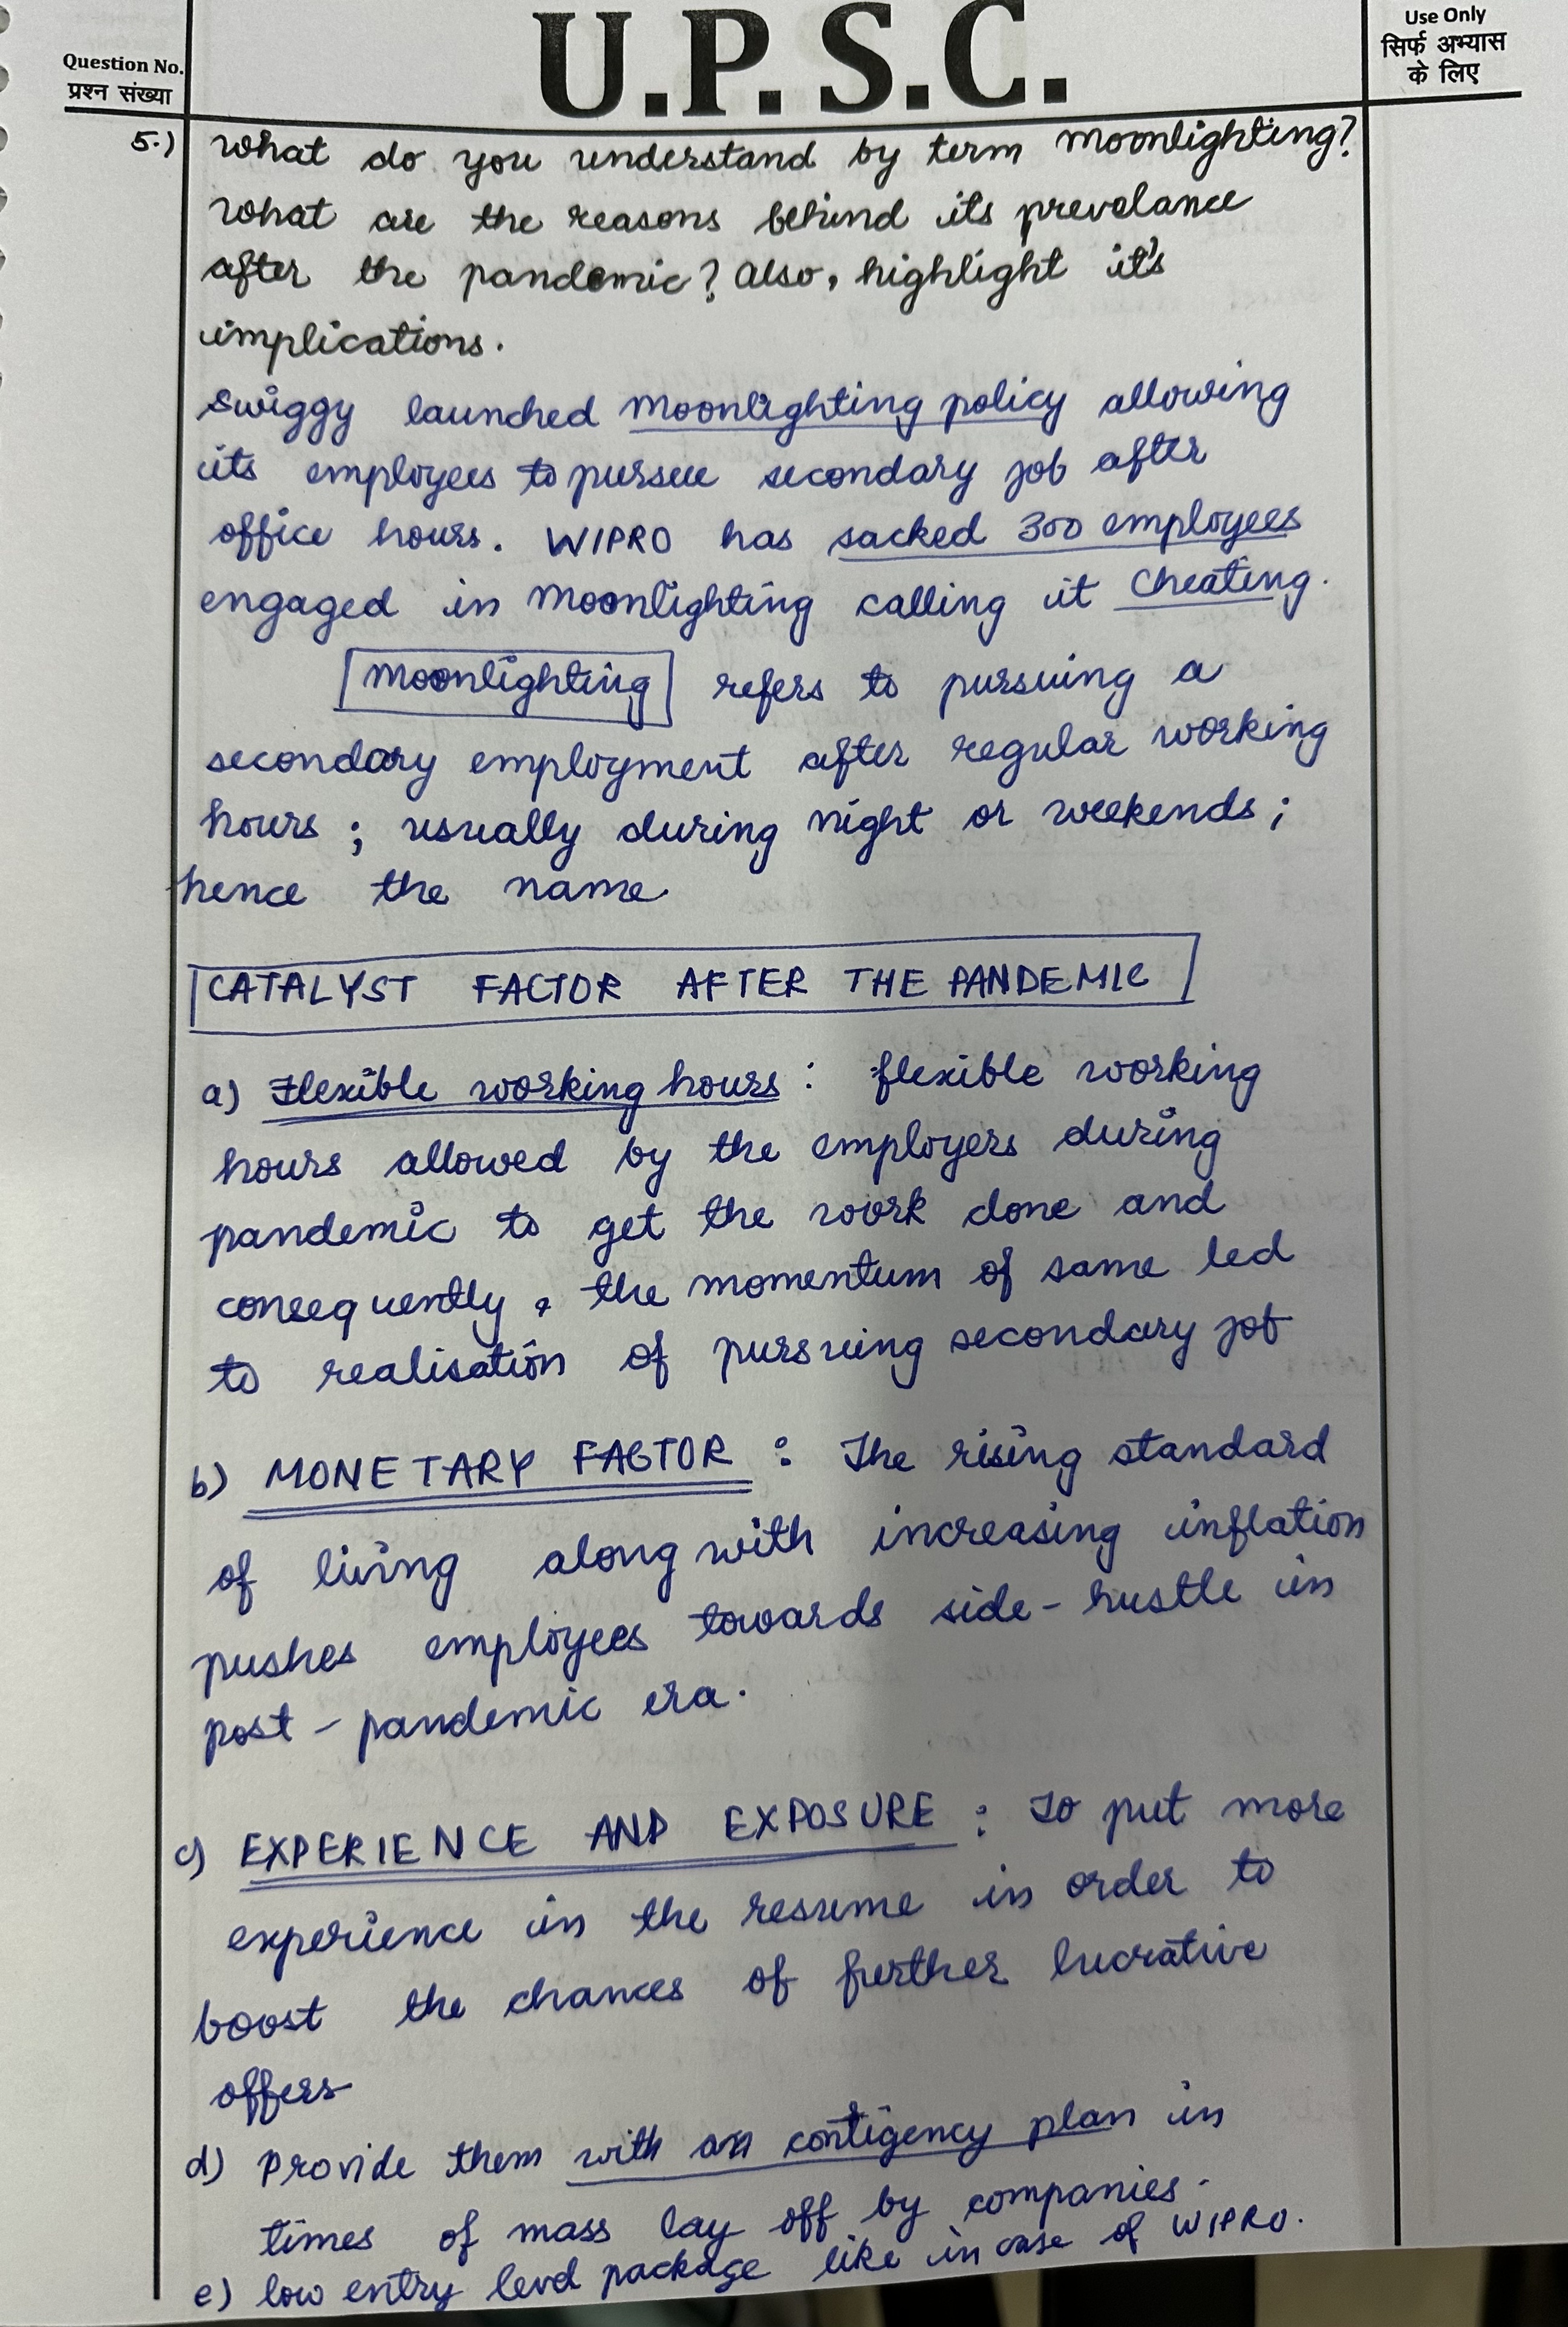 U.P.S.C.
Use Only
सिर्फ अभ्यास
के लिए
Question No.
प्रश्न संख्या
5.) What do you understand by term moonlighting?
What are the reasons behind its prevelance
after the pandemic? Also, highlight it's
implications.
Swiggy launched moonlighting policy allowing
its employees to pursue secondary job after
office hours. WIPRO has sacked 300 employees
engaged in moonlighting calling it cheating.
moonlighting refers to pursuing a
secondary employment after regular working
hours ; usually during night or weekends ;
hence the name
CATALYST FACTOR AFTER THE PANDEMIC
a) Flexible working hours : flexible working
hours allowed by the employers during
pandemic to get the work done and
consequently, the momentum of same led
to realisation of pursuing secondary job
b) MONETARY FACTOR : The rising standard
of living along with increasing inflation
pushes employees towards side-hustle in
post-pandemic era.
c) EXPERIENCE AND EXPOSURE : To put more
experience in the resume in order to
boost the chances of further lucrative
offers
d) Provide them with an contigency plan in
times of mass lay off by companies.
e) low entry level package like in case of WIPRO.